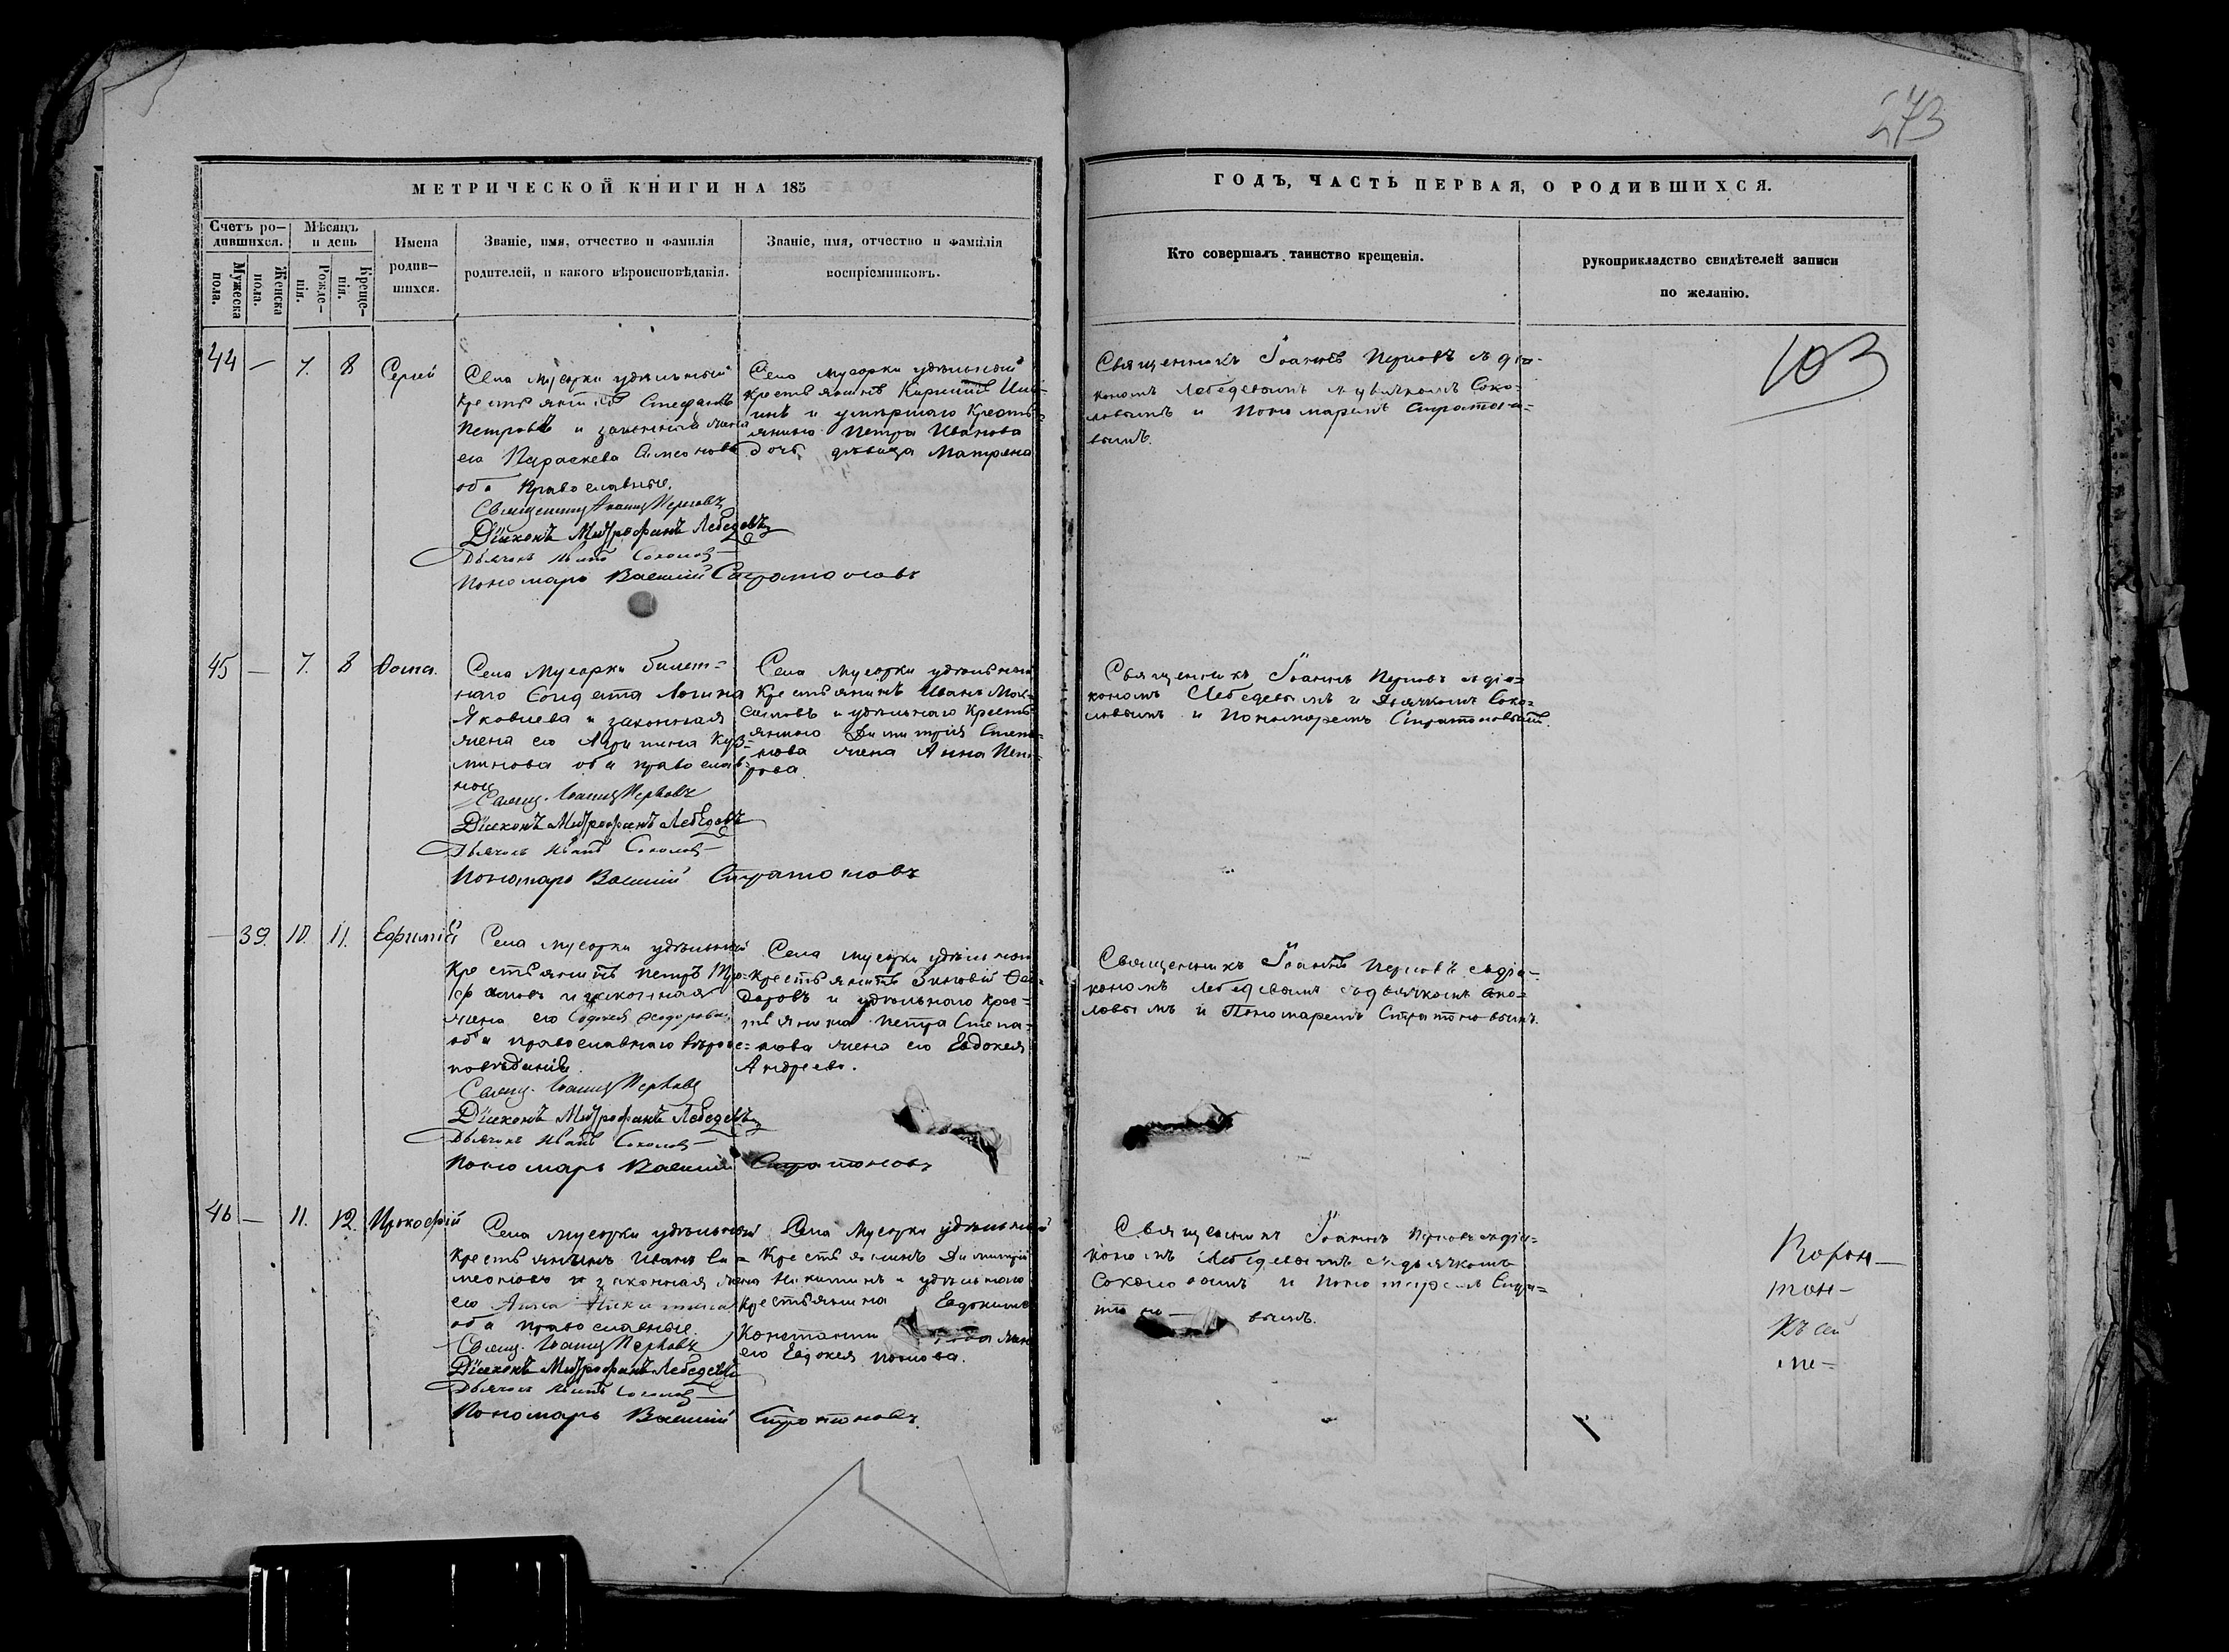 273
МЕТРИЧЕСКОЙ КНИГИ НА 185
ГОДЪ, ЧАСТЬ ПЕРВАЯ, О РОДИВШИХСЯ.
Счетъ ро-
дившихся.
Мужеска
пола.
Женска
пола.
Мѣсяцъ
и день
Рожде-
нія.
Креще-
нія.
Имена
родив-
шихся.
Званіе, имя, отчество и фамилія
родителей, и какого вѣроисповѣданія.
Званіе, имя, отчество и фамилія
воспріемниковъ.
Кто совершалъ таинство крещенія.
рукоприкладство свидѣтелей записи
по желанію.
44 — 7. 8 Сергій
Села Мусорки удѣльный
крестьянинъ Стефанъ
Петровъ и законная жена
его Параскева Симеонова
оба Православные.
Священникъ Іоаннъ Перловъ
Діаконъ Митрофанъ Лебедевъ
Дьячокъ Иванъ Соколовъ
Пономарь Василій Стратоновъ
Села Мусорки удѣльный
крестьянинъ
и умершаго Кресть-
янина Петра Иванова
дочь девица Матрена
Священникъ Іоаннъ Перловъ съ діа-
кономъ Лебедевымъ и дьячкомъ Соко-
ловымъ и Пономаремъ Стратоно-
вымъ.
103
45 — 7. 8 Ѳома.
Села Мусорки билет-
наго Солдата Логина
Яковлева и законная
жена его Агрипина Куз-
минова оба православ-
ные
Свящ. Іоаннъ Перловъ
Діаконъ Митрофанъ Лебедевъ
Дьячокъ Иванъ Соколовъ
Пономарь Василій Стратоновъ
Села Мусорки удѣльный
Крестьянинъ Иванъ Мак-
симовъ и удѣльнаго Кресть-
янина Димитрія Степа-
нова жена Анна Пет-
рова.
Священникъ Іоаннъ Перловъ съ діа-
кономъ Лебедевымъ и Дьячкомъ Соко-
ловымъ и Пономаремъ Стратоновымъ.
— 39. 10. 11. Евфимія
Села Мусорки удѣльный
Крестьянинъ Петръ Тро-
фимовъ и законная
жена его Ѳеодорова
оба православнаго вѣроис-
повѣданія.
Свящ. Іоаннъ Перловъ
Діаконъ Митрофанъ Лебедевъ
Дьячокъ Иванъ Соколовъ
Пономарь Василій Стратоновъ
Села Мусорки удѣльный
Крестьянинъ Зиновій Ѳео-
доровъ и удѣльнаго крес-
тьянина Петра Степа-
нова жена его Евдокея
Андреева.
Священникъ Іоаннъ Перловъ съ діа-
кономъ Лебедевымъ съ дьячкомъ Соко-
ловымъ и Пономаремъ Стратоновымъ.
46 — 11. 12. Прокофій
Села Мусорки удѣльный
Крестьянинъ Иванъ Си-
меоновъ и законная жена
его Анна Никитина
оба православные.
Свящ. Іоаннъ Перловъ
Діаконъ Митрофанъ Лебедевъ
Дьячокъ Иванъ Соколовъ
Пономарь Василій Стратоновъ.
Села Мусорки удѣльный
Крестьянинъ Димитрій
Никитинъ и удѣльнаго
Крестьянина Евдокима
Константи нова жена
его Евдокея
Священникъ Іоаннъ Перловъ съ діа-
кономъ Лебедевымъ съ дьячкомъ
Соколовымъ и Пономаремъ Стра-
тоно вымъ.